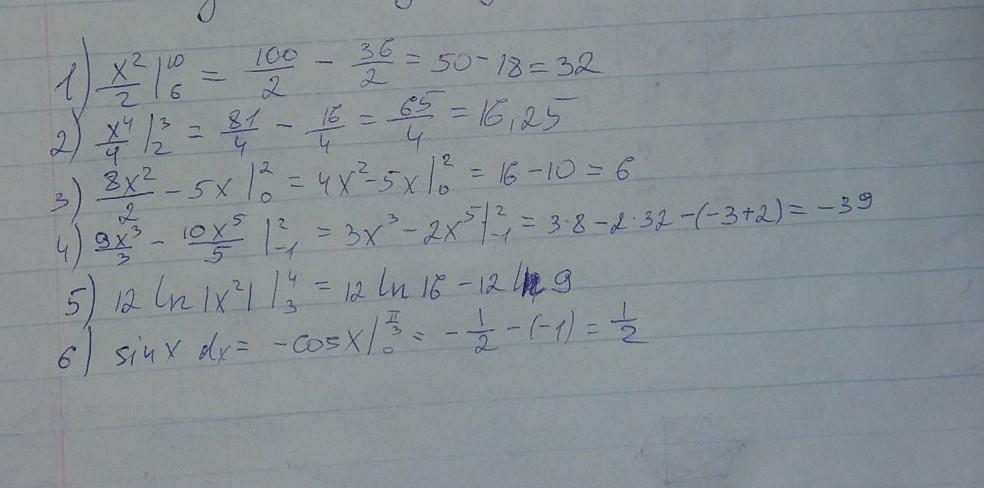 1) x²/2 |₆¹⁰ = 100/2 - 36/2 = 50-18 = 32
2) x⁴/4 |₂³ = 81/4 - 16/4 = 65/4 = 16,25
3) 8x²/2 - 5x |₀² = 4x²-5x |₀² = 16-10 = 6
4) 9x³/3 - 10x⁵/5 |₋₁² = 3x³-2x⁵ |₋₁² = 3·8-2·32-(-3+2) = -39
5) 12 ln |x²| |₃⁴ = 12 ln 16 - 12 ln 9
6) sin x dx = -cos x |₀^(π/3) = -1/2 - (-1) = 1/2